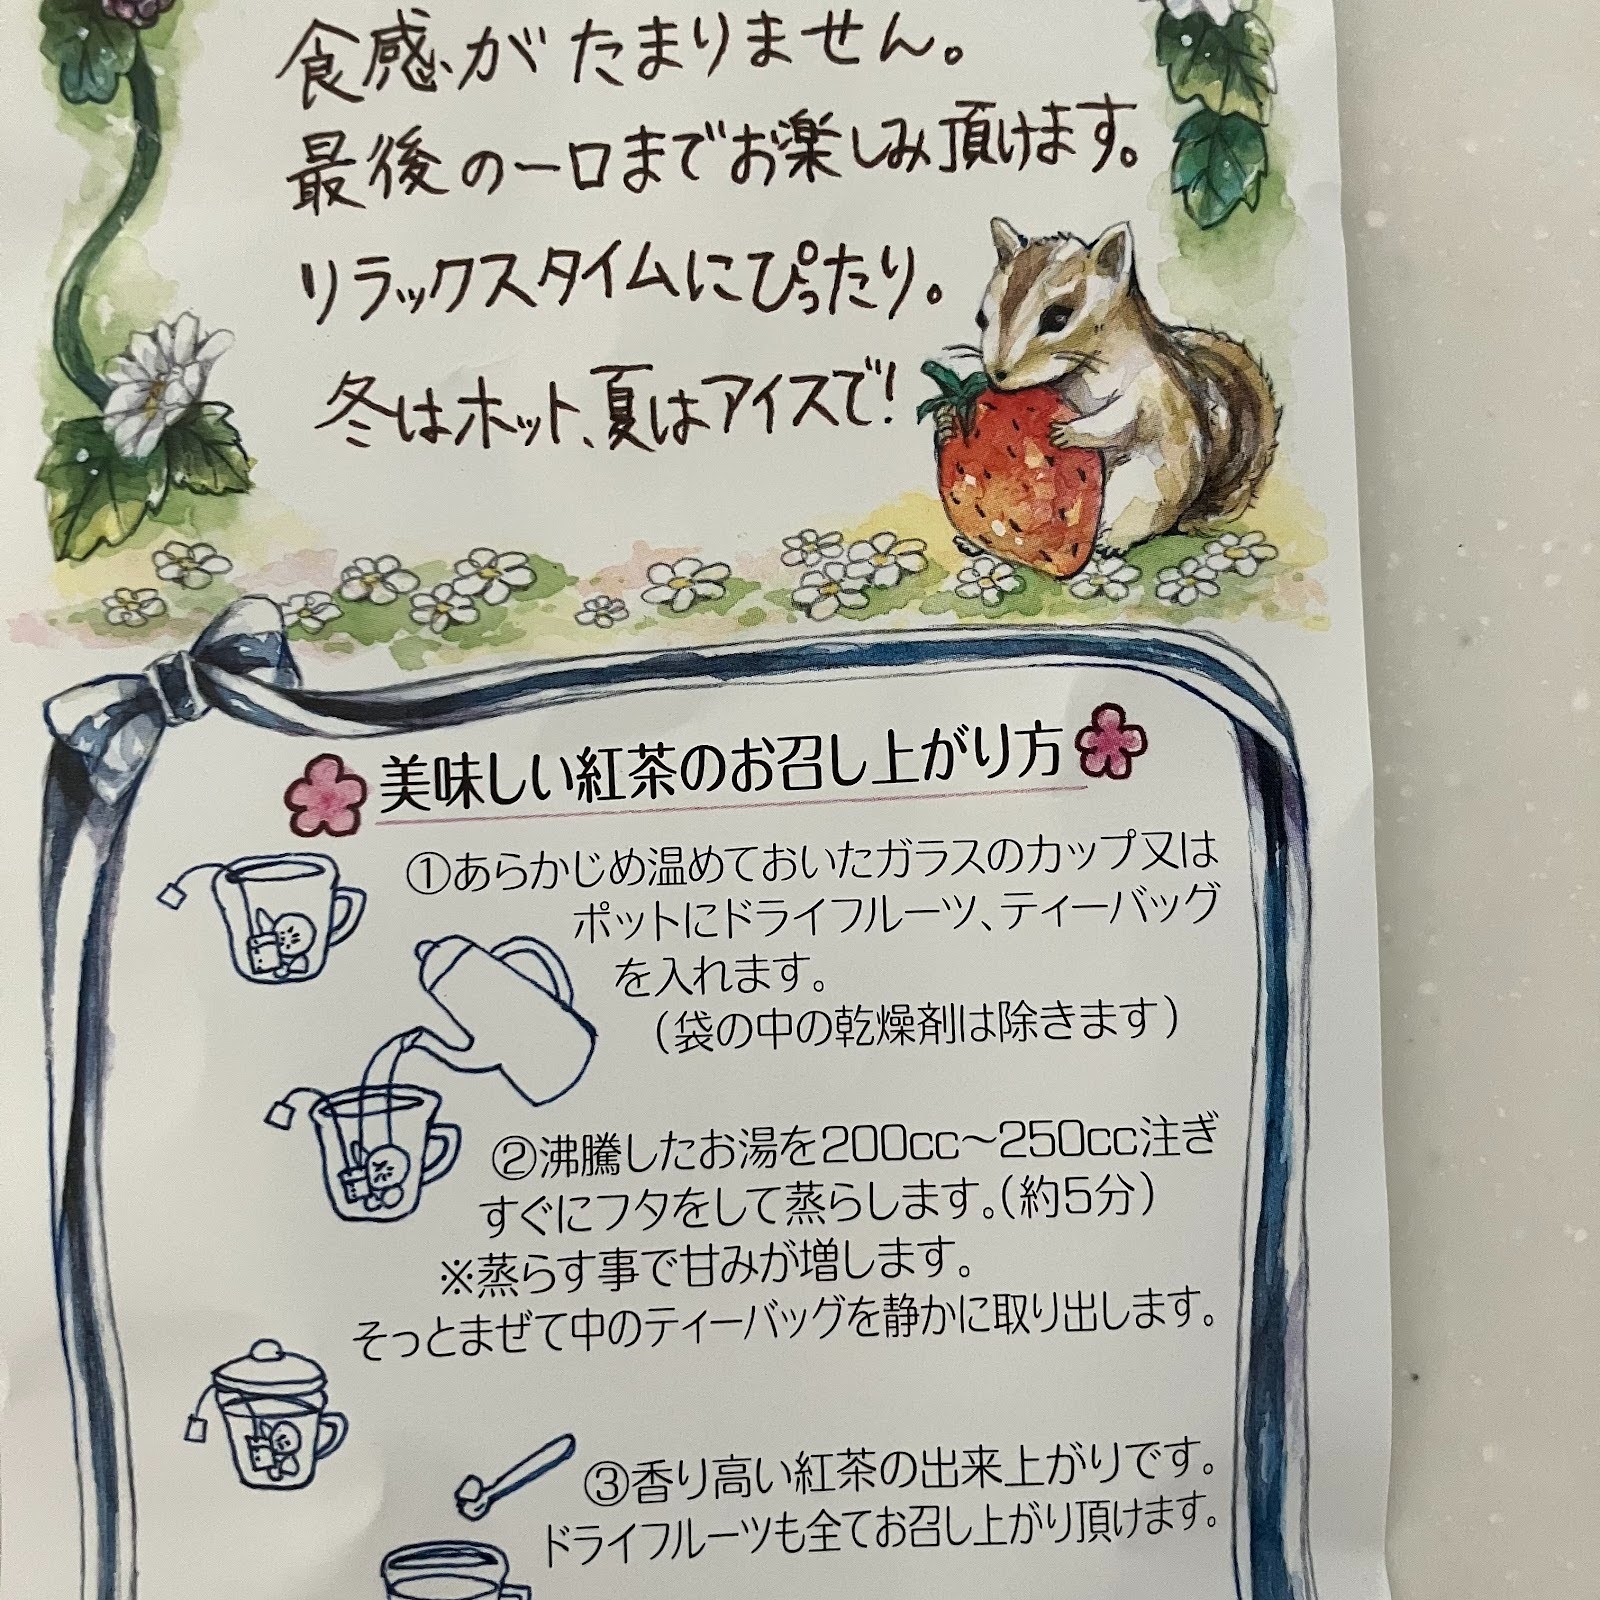 食感がたまりません。
最後の一口までお楽しみ頂けます。
リラックスタイムにぴったり。
冬はホット、夏はアイスで!
美味しい紅茶のお召し上がり方
①あらかじめ温めておいたガラスのカップ又は
ポットにドライフルーツ、ティーバッグ
を入れます。
(袋の中の乾燥剤は除きます)
②沸騰したお湯を200cc〜250cc注ぎ
すぐにフタをして蒸らします。(約5分)
※蒸らす事で甘みが増します。
そっとまぜて中のティーバッグを静かに取り出します。
③香り高い紅茶の出来上がりです。
ドライフルーツも全てお召し上がり頂けます。